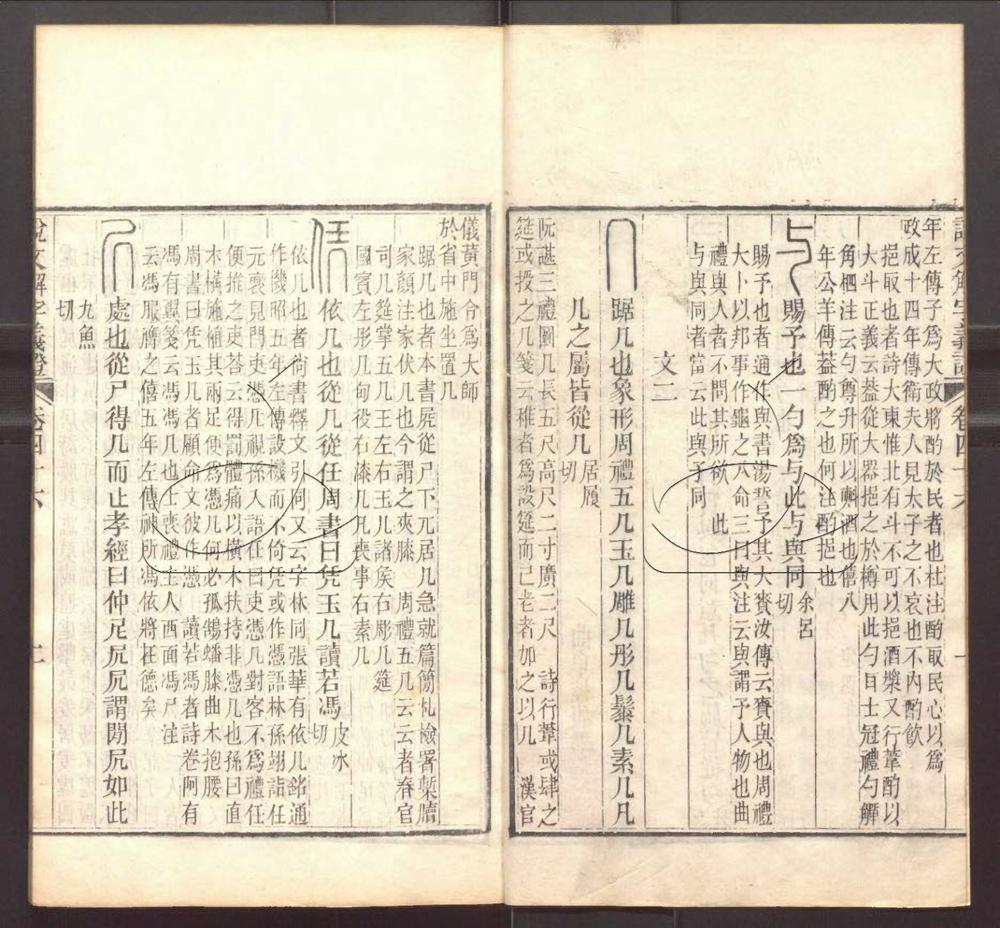 年左傳子爲大政將酌於民者也杜注酌取民心以爲
政成十四年傳衛夫人見太子之不哀也不內酌飲
挹取也者詩大東惟北有斗不可以挹酒漿又行葦酌以
大斗正義云葢從大器挹之於樽用此勺耳士冠禮勺觶
角柶注云勺尊升所以㪺酒也僖八
年公羊傳葢酌之也何注酌挹也
与賜予也一勺爲与此与與同余呂切
賜予也者通作與書湯誓予其大賚汝傳云賚與也周禮
大卜以邦事作龜之八命三曰與注云與謂予人物也曲
禮與人者不問其所欲 此
与與同者當云此與予同
文二
几踞几也象形周禮五几玉几雕几彤几髹几素几凡
几之屬皆從几居履切
阮諶三禮圖几長五尺高尺二寸廣二尺 詩行葦或肆之
筵或授之几箋云稚者爲設筵而已老者加之以几 漢官
儀黃門令爲大師
於省中施坐置几
踞几也者本書屍從尸下丌居几急就篇簡札檢署槧牘
家顏注家伏几也今謂之夾膝 周禮五几云云者春官
司几筵掌五几王左右玉几諸矦右彫几筵
國賓左彤几甸役右漆几凡喪事右素几
凭依几也從几從任周書曰凭玉几讀若馮皮冰切
依几也者尙書釋文引同又云字林同張華有依几銘通
作機昭五年左傳設機而不倚凭或作憑語林孫翊詣任
元褒見門吏憑几視孫入語任曰吏憑几對客不爲禮任
便推之吏荅云得罰體痛以橫木扶持非憑几也孫曰直
木橫施植其兩足便爲憑几何必孤鵠蟠膝曲木抱腰
周書曰凭玉几者顧命文彼作憑 讀若馮者詩卷阿有
馮有翼箋云馮馮几也士喪禮主人西面馮尸注
云馮服膺之僖五年左傳神所馮依將在德矣
凥處也從尸得几而止孝經曰仲尼凥凥謂閒凥如此
九魚切
說文解字義證 卷四十六 二